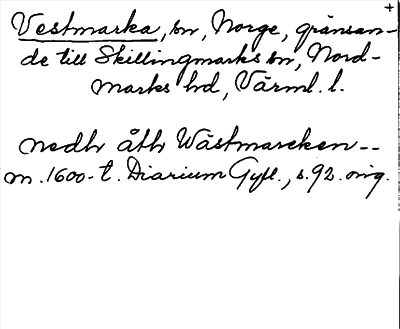 +
Vestmarka, sn, Norge, gränsan-
de till Skillingmarks sn, Nord-
marks hd, Värml. l.
nedh åth Wästmarcken--
m. 1600-t. Diarium Gyll., s. 92. orig.